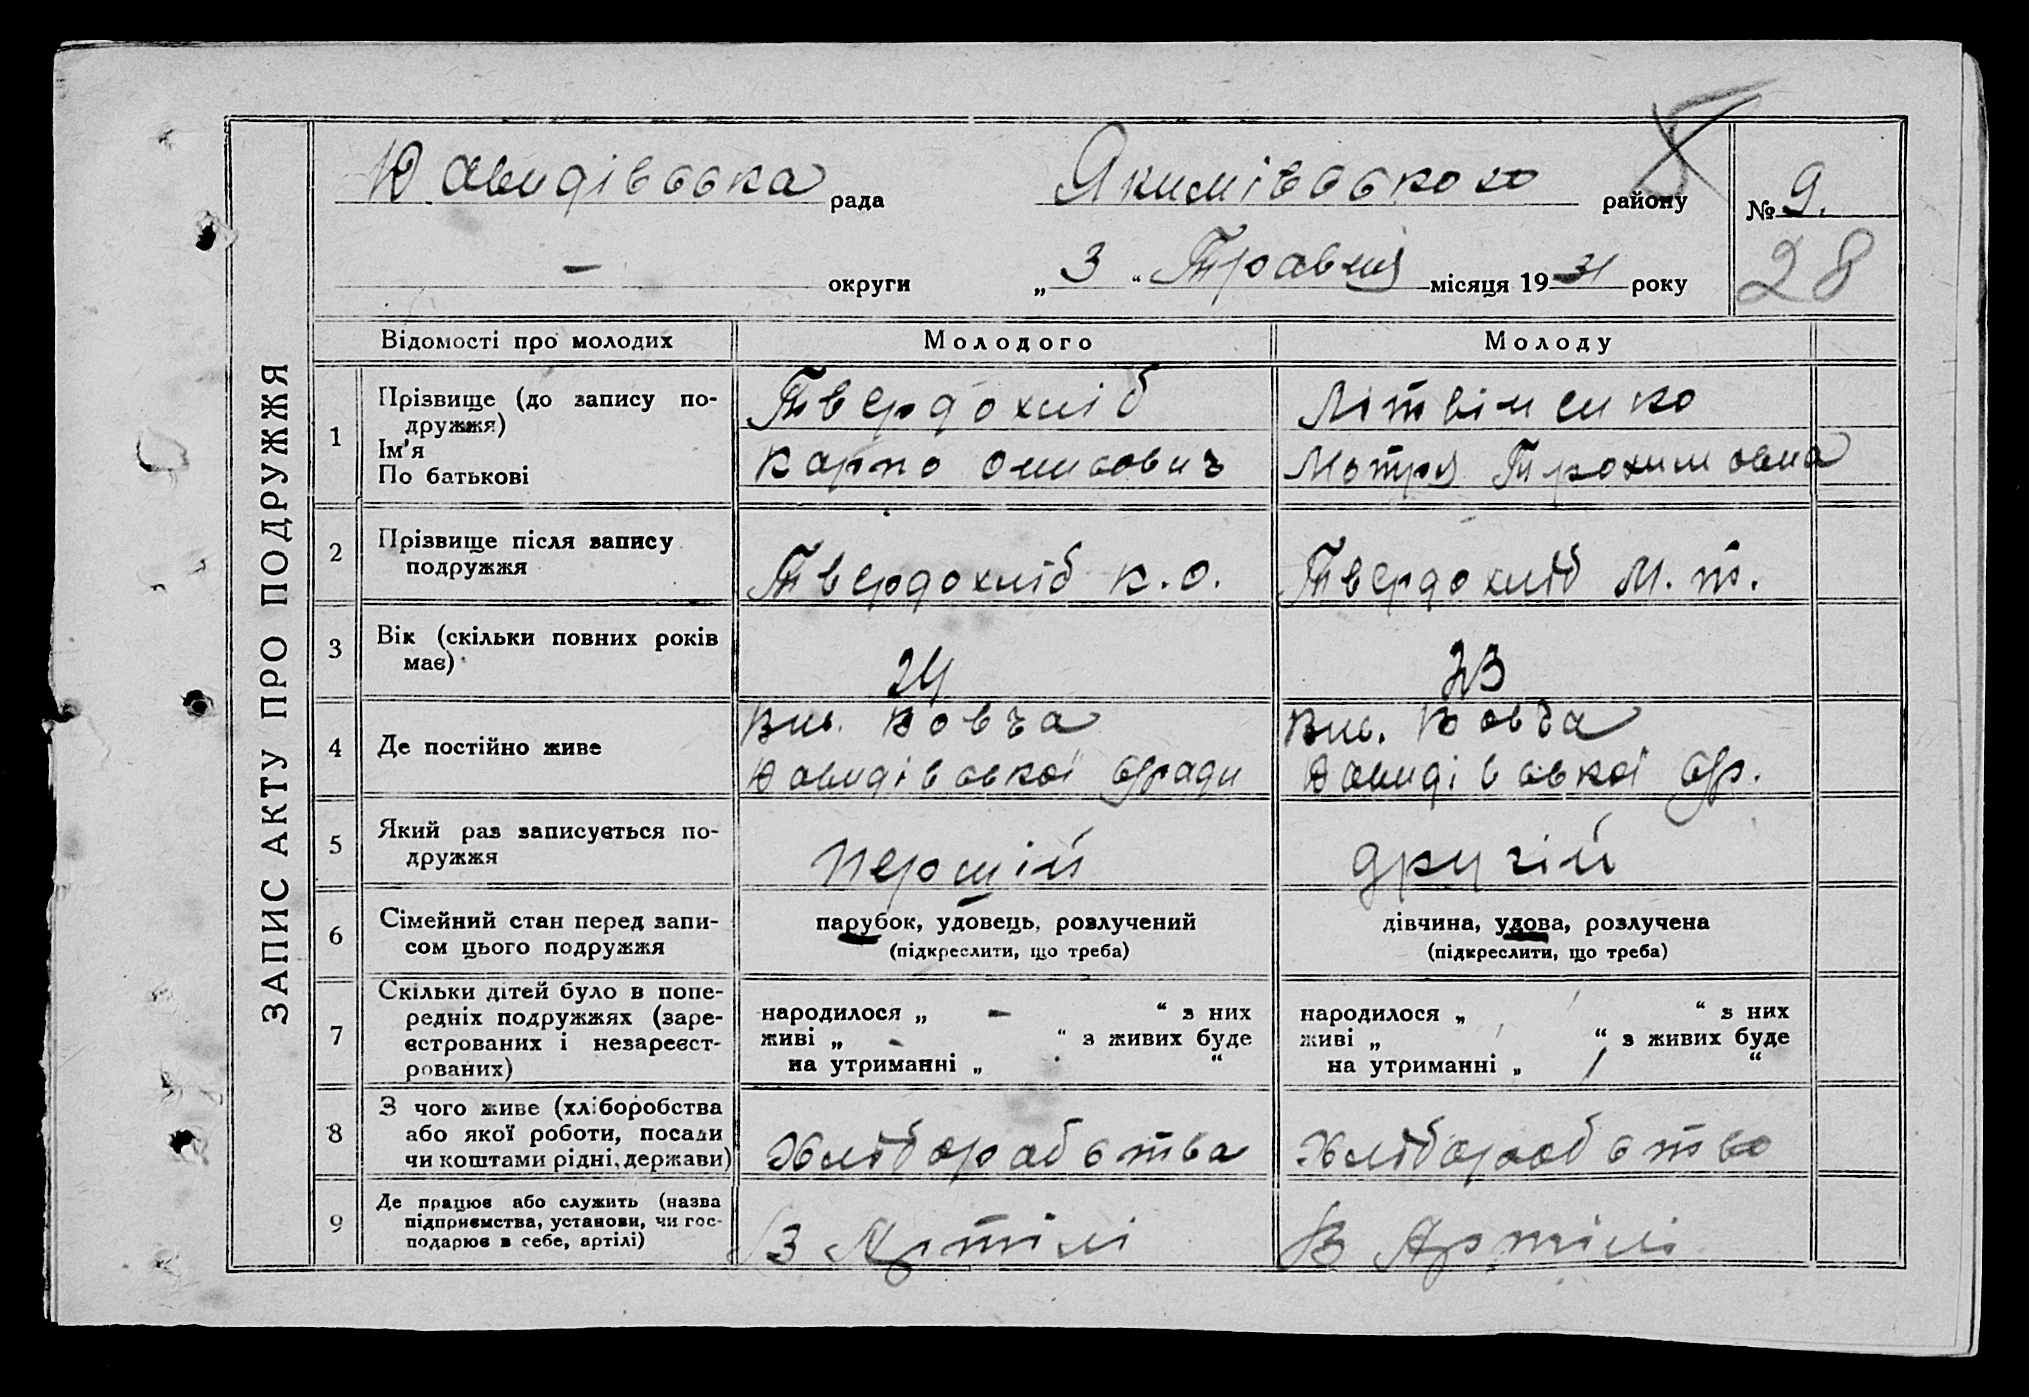 ЗАПИС АКТУ ПРО ПОДРУЖЖЯ
Давидівська рада Якимівського району № 9.
— округи „ 3 “ Травня місяця 19 31 року 28
Відомості про молодих Молодого Молоду
1 Прізвище (до запису по-
дружжя)
Ім'я
По батькові
Твердохліб Літвіненко
Карпо Онисович Мотря Трохимовна
2 Прізвище після запису
подружжя
Твердохліб К. О. Твердохліб М. Т.
3 Вік (скільки повних років
має)
24 23
4 Де постійно живе
Вис. Вовча Вис. Вовча
Давидівської с/ради Давидівської с/р.
5 Який раз записується по-
дружжя
першій другій
6 Сімейний стан перед запи-
сом цього подружжя
парубок, удовець, розлучений дівчина, удова, розлучена
(підкреслити, що треба) (підкреслити, що треба)
7 Скільки дітей було в попе-
редніх подружжях (заре-
єстрованих і незареєст-
рованих)
народилося „ — “ з них народилося „ “ з них
живі „ - “ з живих буде живі „ “ з живих буде
на утриманні „ “ на утриманні „ “
8 З чого живе (хліборобства
або якої роботи, посади
чи коштами рідні, держави)
Хліборобства Хліборобство
9 Де працює або служить (назва
підприємства, установи, чи гос-
подарює в себе, артілі)
В Артілі В Артілі